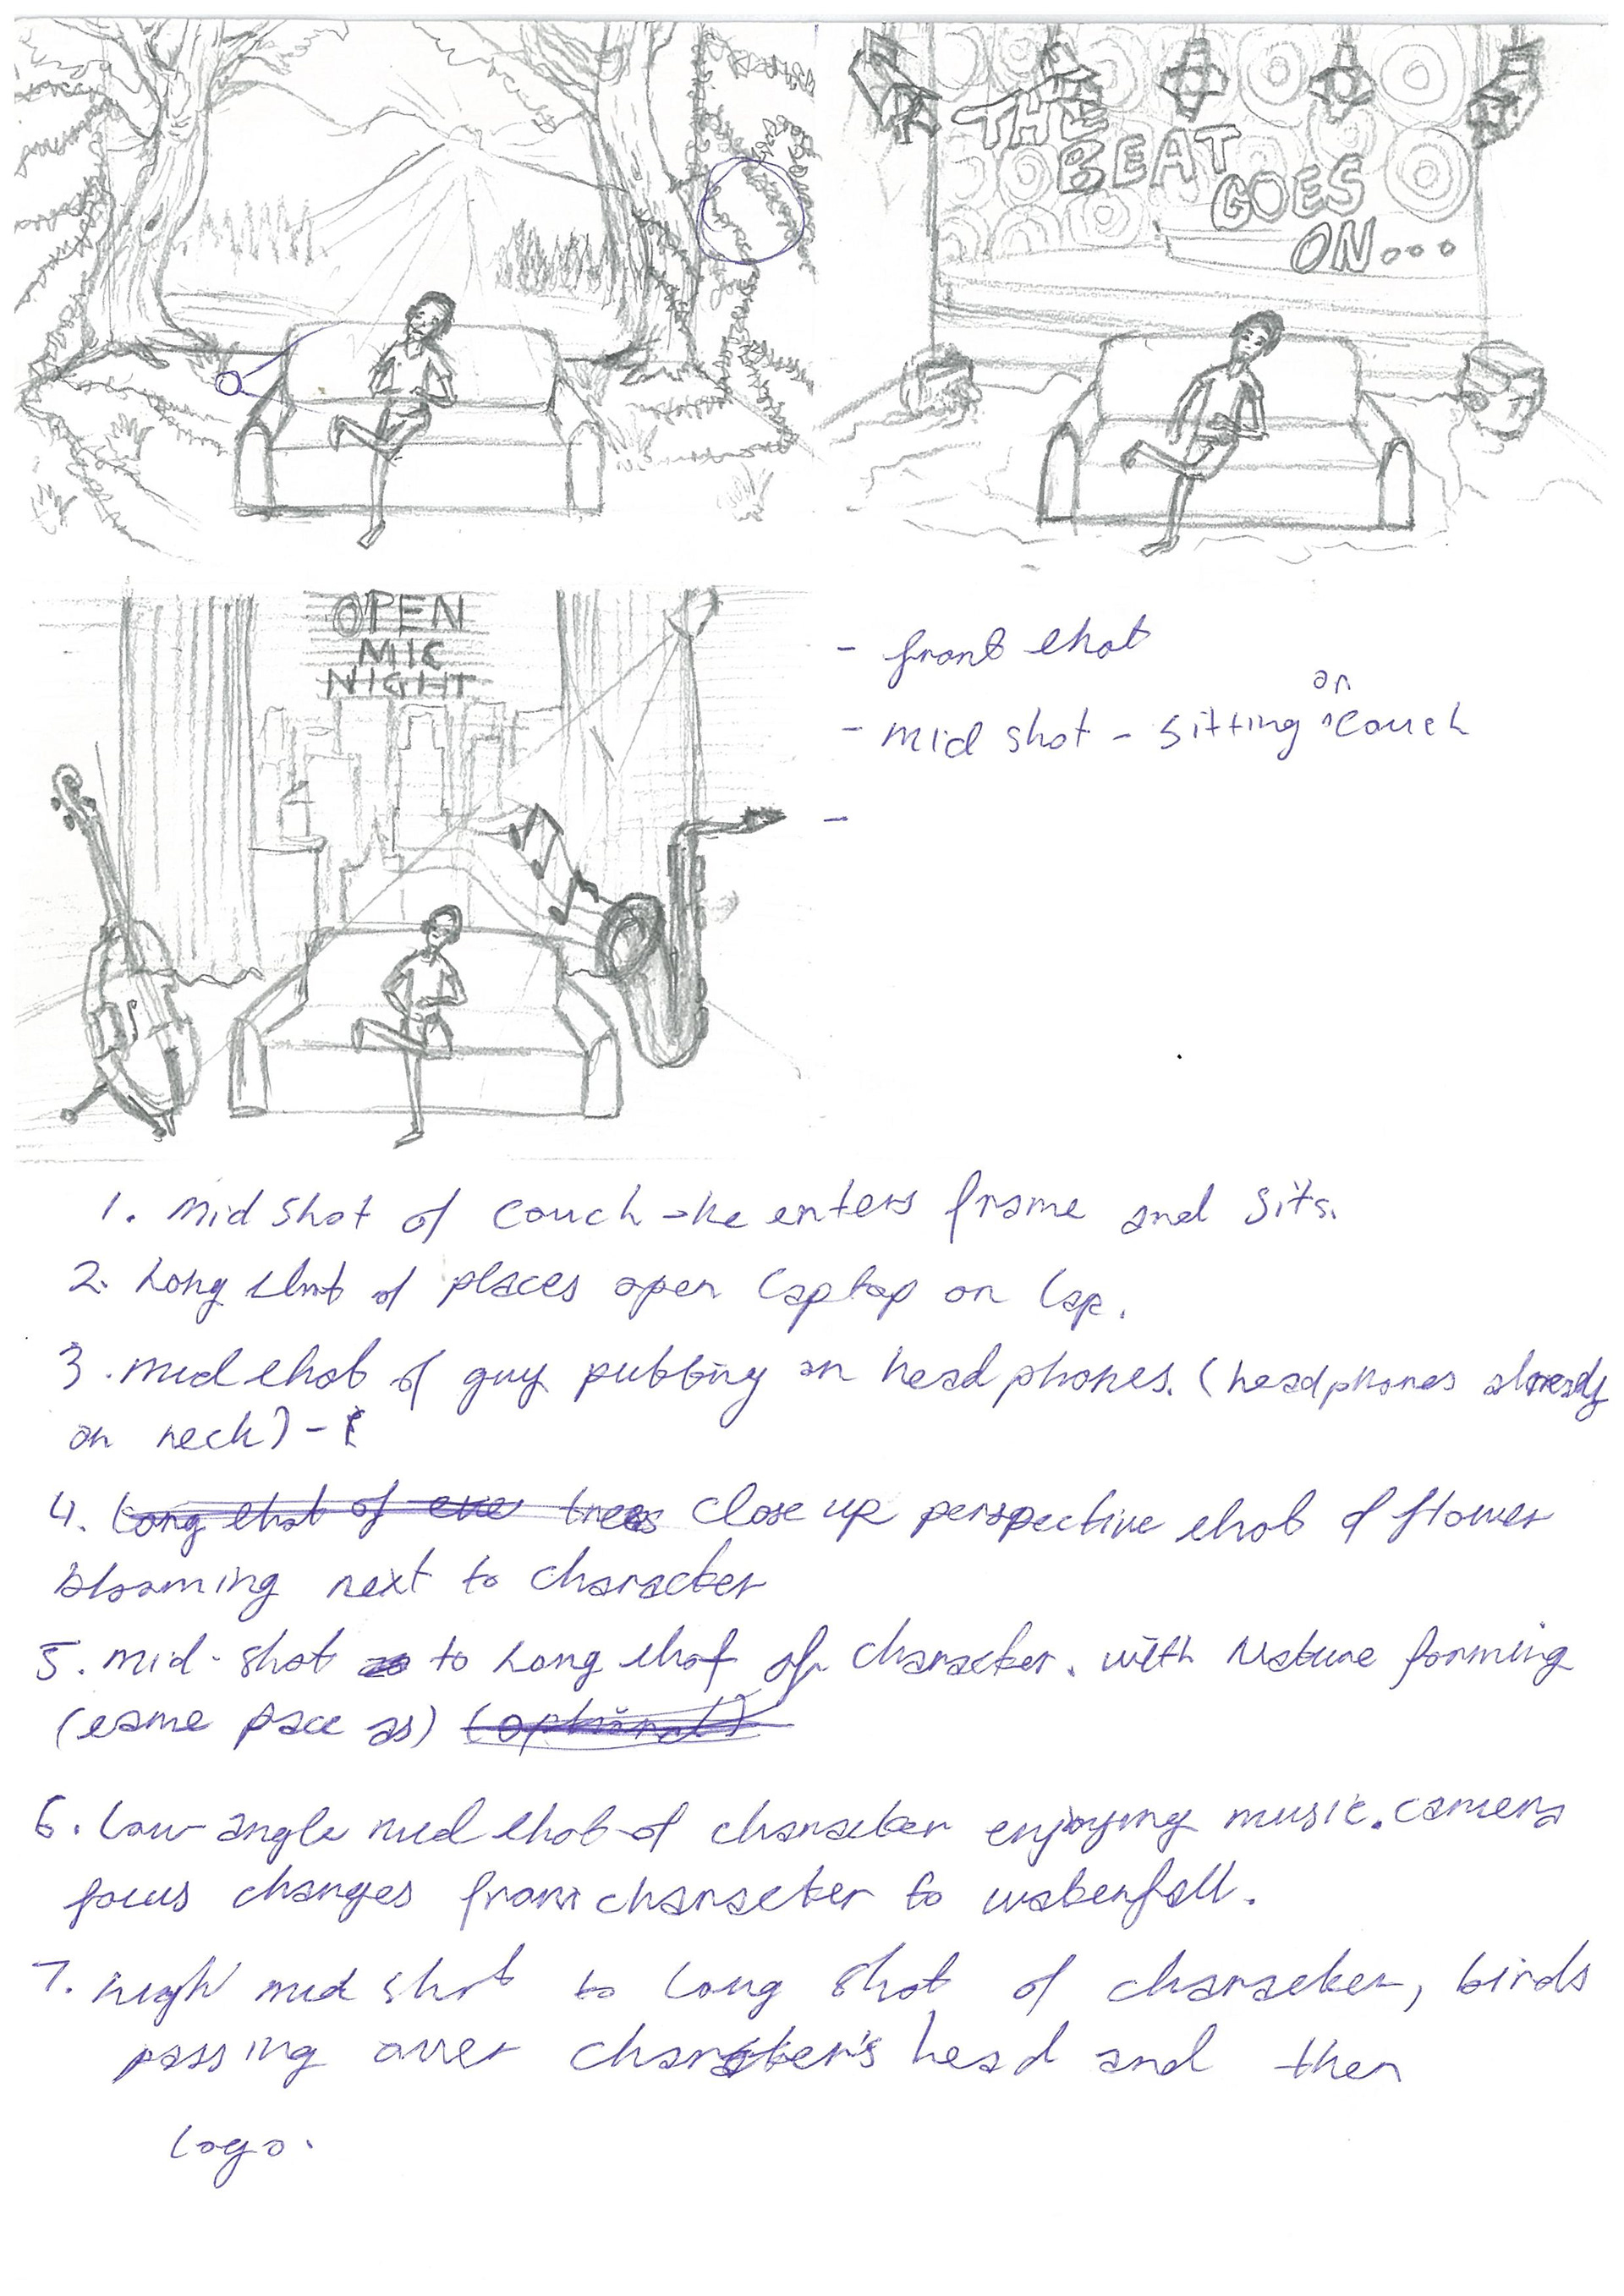 THE
BEAT
GOES
ON...
OPEN
MIC
NIGHT
- front shot
- mid shot - sitting on couch
-
1. mid shot of couch - he enters frame and sits.
2. Long shot of places open laptop on lap.
3. mid shot of guy putting on headphones. (headphones already
on neck) -
4. Long shot of trees close up perspective shot of flower
blooming next to character
5. mid-shot to Long shot of character. with Nature forming
(same pace as) (optional)
6. Low angle mid shot of character enjoying music. camera
focus changes from character to waterfall.
7. high mid shot to long shot of character, birds
passing over character's head and then
logo.